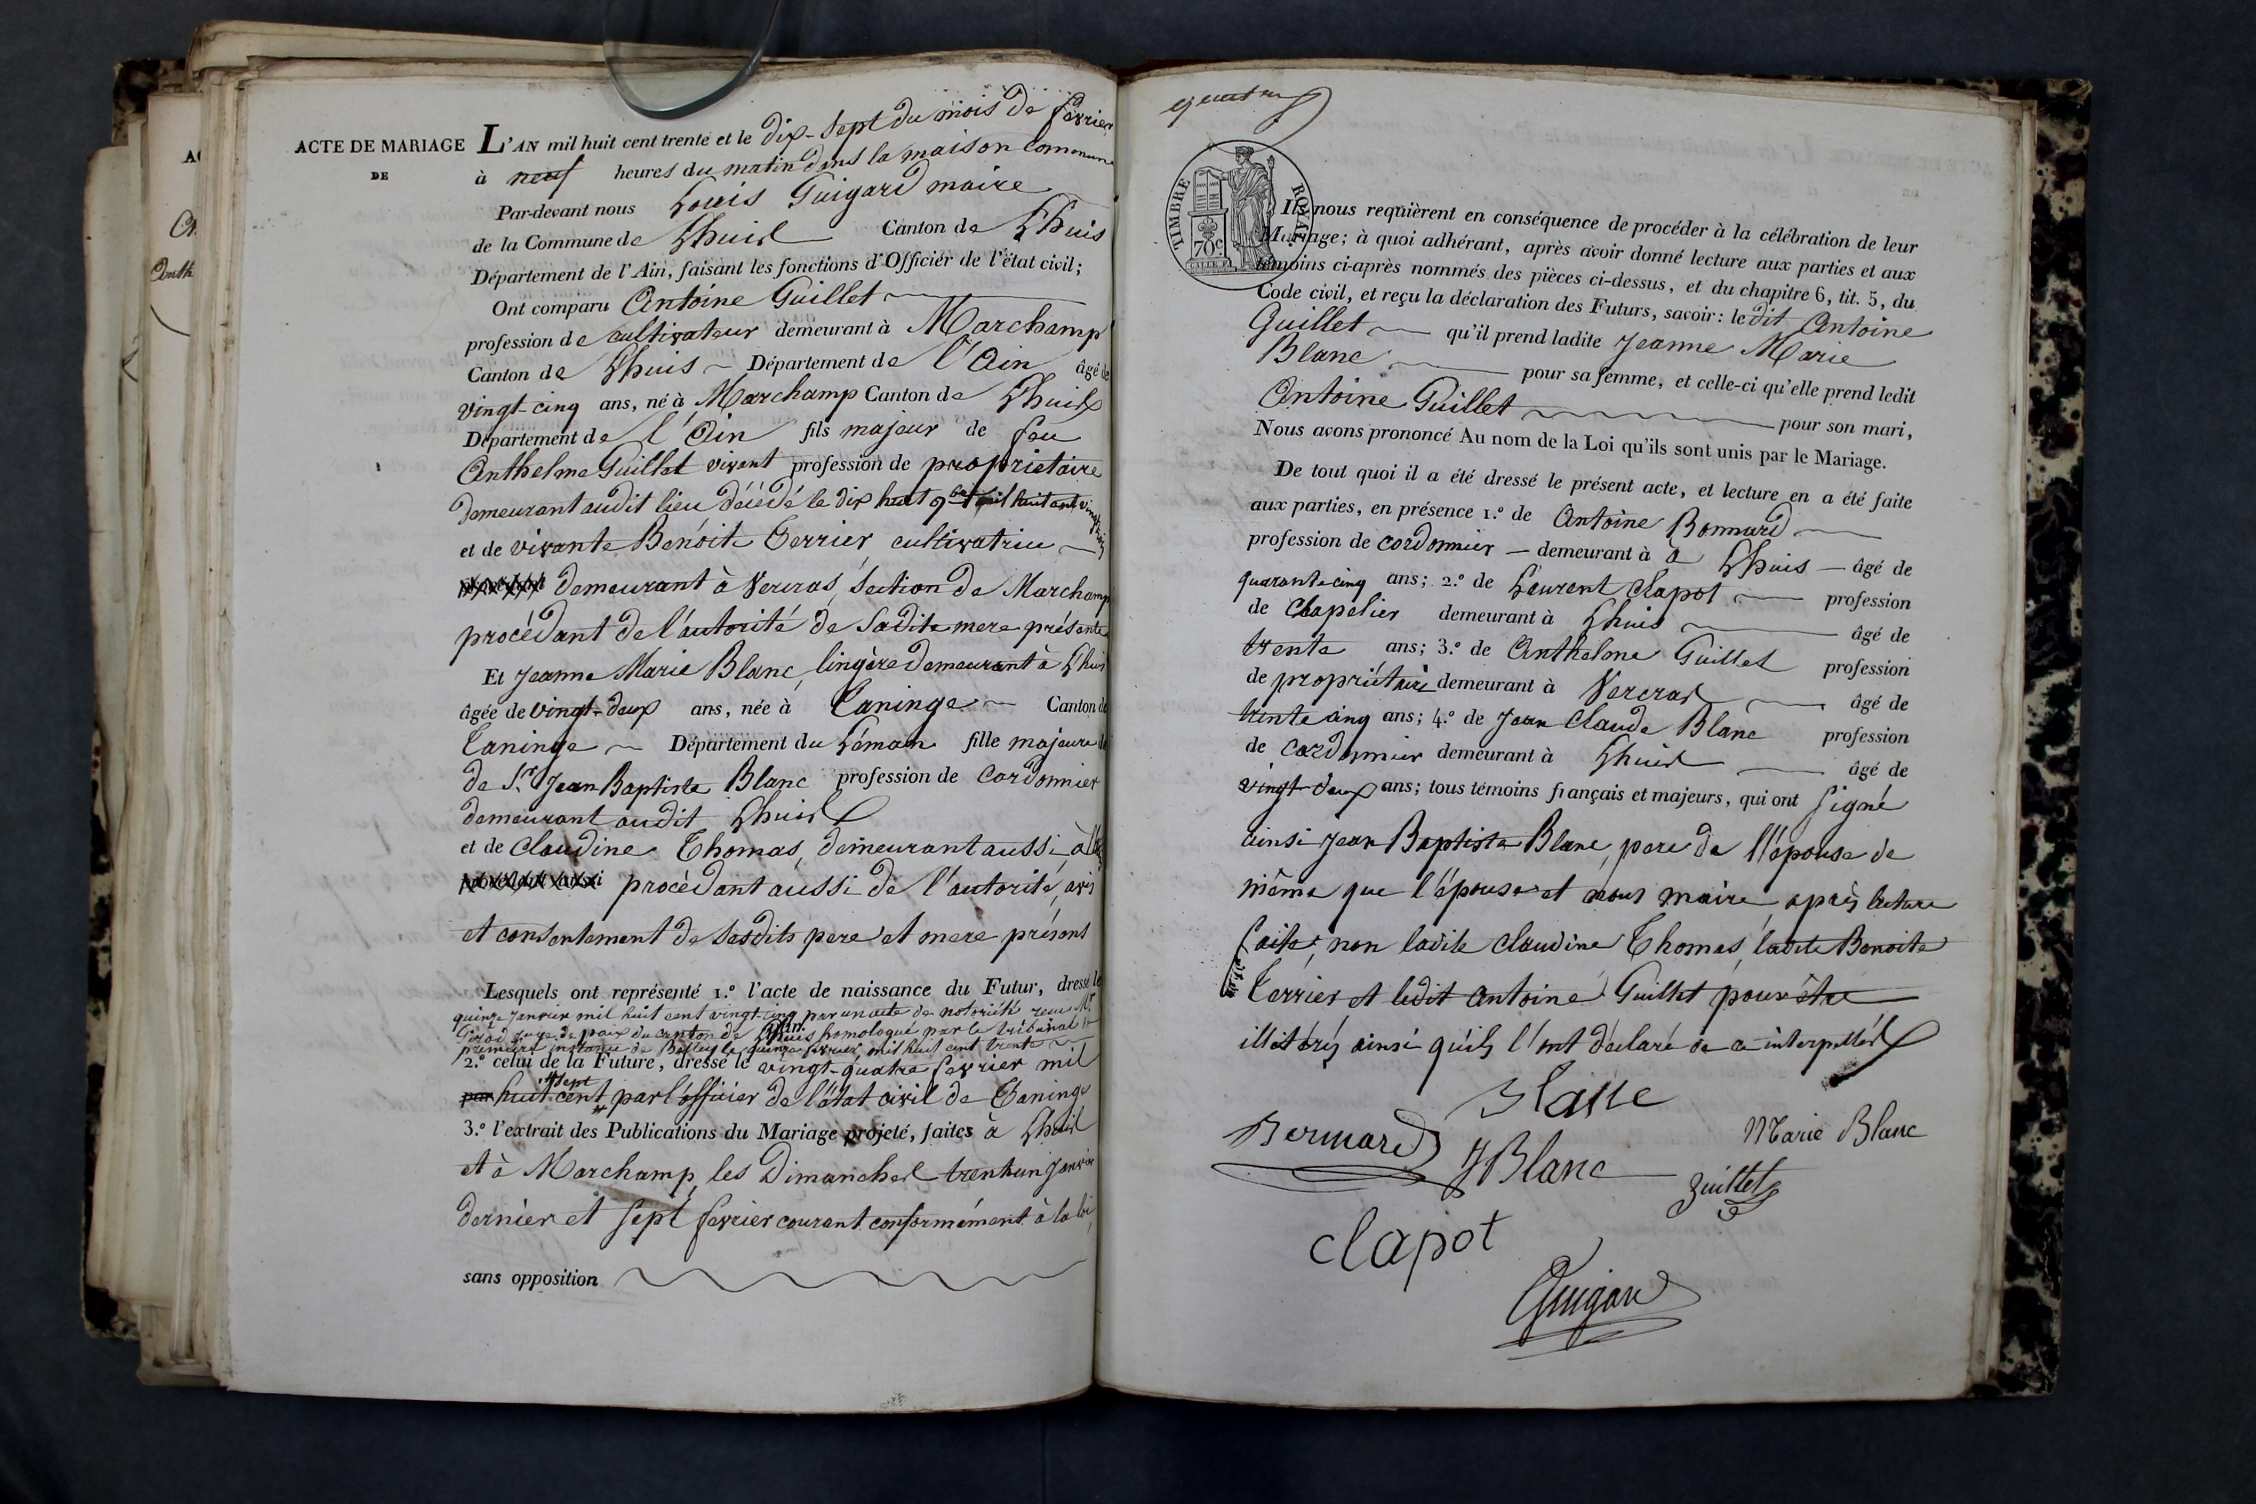 ACTE DE MARIAGE
DE
L'AN mil huit cent trente et le dix-sept du mois de février
à neuf heures du matin dans la maison commune
Par-devant nous Louis Guigard maire
de la Commune de Lhuis Canton de Lhuis
Département de l'Ain, faisant les fonctions d'Officier de l'état civil;
Ont comparu Antoine Guillet
profession de cultivateur demeurant à Marchamp
Canton de Lhuis Département de l'Ain âgé de
vingt-cinq ans, né à Marchamp Canton de Lhuis
Département de l'Ain fils majeur de feu
Anthelme Guillet vivant profession de propriétaire
demeurant audit lieu décédé le dix huit 9bre mil huit cent vingt
et de vivante Benoite Terrier, cultivatrice
demeurant à Vercras, section de Marchamp
procédant de l'autorité de sadite mere présente
Et Jeanne Marie Blanc, lingère demeurant à Lhuis
âgée de vingt-deux ans, née à Taninge Canton de
Taninge Département du Léman fille majeure de
de Sr Jean Baptiste Blanc profession de cordonnier
demeurant audit Lhuis
et de Claudine Thomas, demeurant aussi à
procèdant aussi de l'autorité, avis
et consentement de sesdits pere et mere présents
Lesquels ont représenté 1.º l'acte de naissance du Futur, dressé le
quinze janvier mil huit cent vingt-cinq par un acte de notoriété reçu Mr
juge de paix du canton de Lhuis homologué par le tribunal de
première instance de Belley le quinze fevrier mil huit cent trente
2.º celui de la Future, dressé le vingt-quatre fevrier mil
par huit cent sept par l'officier de l'état civil de Taninge
3.º l'extrait des Publications du Mariage projeté, faites à Lhuis
et à Marchamp, les Dimanches trente un janvier
dernier et sept fevrier courant conformément à la loi,
sans opposition
TIMBRE ROYAL
70c
Ils nous requièrent en conséquence de procéder à la célébration de leur
Mariage; à quoi adhérant, après avoir donné lecture aux parties et aux
témoins ci-après nommés des pièces ci-dessus, et du chapitre 6, tit. 5, du
Code civil, et reçu la déclaration des Futurs, savoir: ledit Antoine
Guillet qu'il prend ladite Jeanne Marie
Blanc pour sa femme, et celle-ci qu'elle prend ledit
Antoine Guillet pour son mari,
Nous avons prononcé Au nom de la Loi qu'ils sont unis par le Mariage.
De tout quoi il a été dressé le présent acte, et lecture en a été faite
aux parties, en présence 1.º de Antoine Bonnard
profession de cordonnier demeurant à à Lhuis âgé de
quarante cinq ans; 2.º de Laurent Clapot profession
de Chapelier demeurant à Lhuis âgé de
trente ans; 3.º de Anthelme Guillet profession
de propriétaire demeurant à Vercras âgé de
trente cinq ans; 4.º de Jean Claude Blanc profession
de cordonnier demeurant à Lhuis âgé de
vingt-deux ans; tous témoins français et majeurs, qui ont signé
ainsi Jean Baptiste Blanc, pere de l'épouse de
même que l'épouse et nous maire, après lecture
faite, non ladite Claudine Thomas, ladite Benoite
Terrier et ledit Antoine Guillet pour être
illétérés ainsi qu'ils l'ont déclaré de ce interpellés
Blanc
Bernard
JBlanc
Marie Blanc
Guillet
Clapot
Guigard